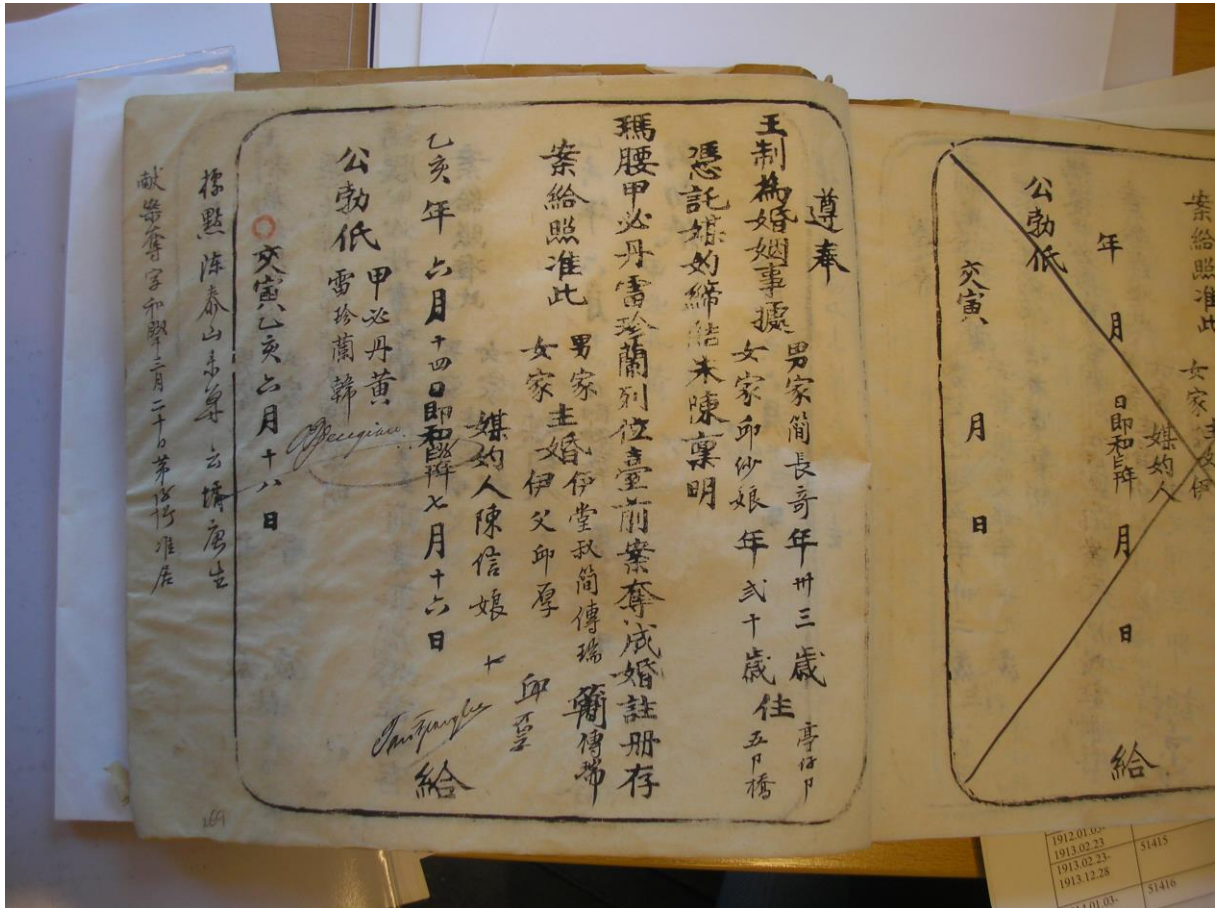 遵奉
王制為婚姻事據
男家簡長奇年卅三歲
女家邱紗娘年弍十歲
住
亭仔尸
五尸橋
憑託媒妁締結朱陳稟明
瑪腰甲必丹雷珍蘭列位臺前案奪成婚註冊存
案給照准此
男家
女家
主婚
伊堂叔簡傳瑞 簡傳瑞
伊父邱厚 邱
媒妁人陳信娘 十
乙亥年六月十四日即和七月十六日
給
公勃低
甲必丹黃
雷珍蘭韓
交寅乙亥六月十八日
陳泰山
案奪字和三月二十日第 准居
269
案給照准此
女家
主
伊
媒妁人
年 月 日即和 月 日
給
公勃低
交寅 月 日
1912.01.03-
1913.02.23
1913.02.23-
1913.12.28
51415
01.03-
51416